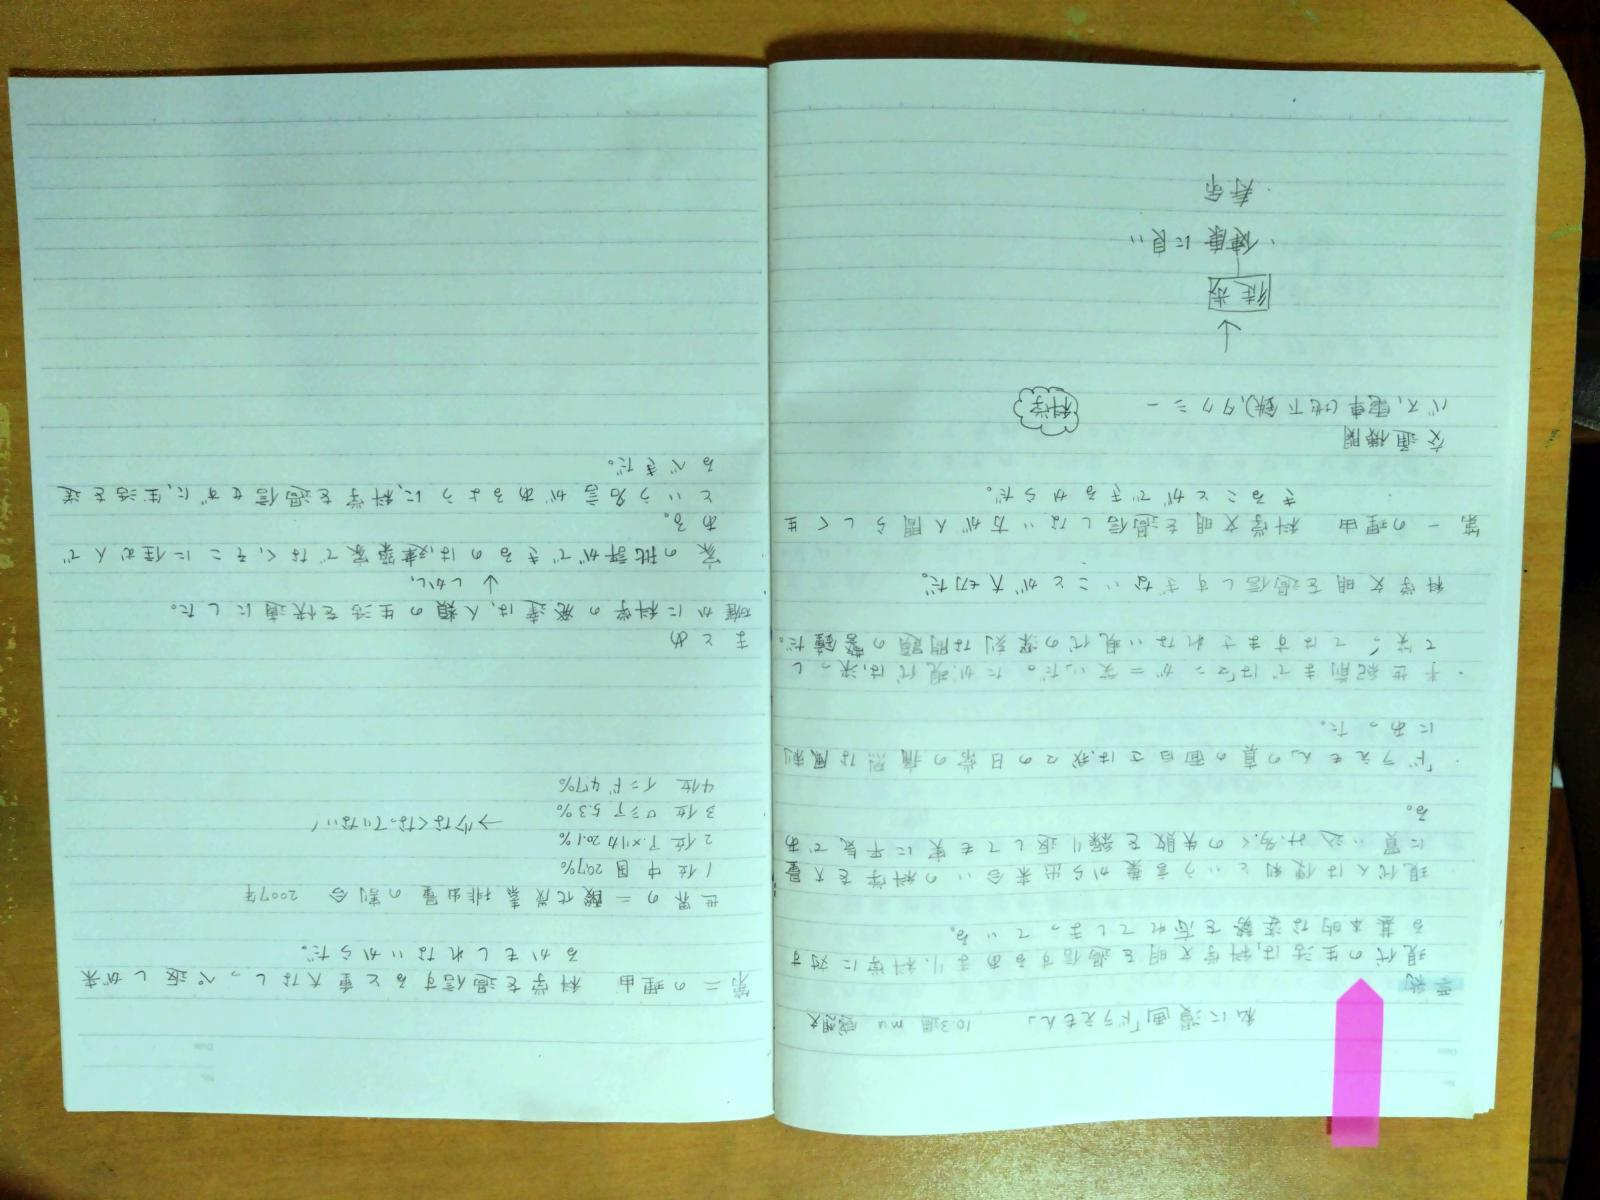 私に漫画「ドラえもん」 10.3週 mu 感想文
要約
現代の生活は、科学文明を過信するあまり、科学に対す
る基本的な姿勢を忘れてしまっている。
現代人は便利という言葉から出来合いの科学を大量
に買い込み、多くの失敗を繰り返しても実に平気であ
る。
・「ドラえもん」の真の面白さは、我々の日常の痛烈な風刺
にあった。
・半世紀前まではマンガ=笑いだ。だが、現代は、決し
て笑ってはすまされない現代の深刻な問題の警鐘だ。
科学文明を過信しすぎないことが大切だ。
第一の理由 科学文明を過信しない方が人間らしく生
きることができるからだ。
交通機関
バス,電車(地下鉄),タクシー 科学
↓
徒歩
・健康に良い
・寿命
第二の理由 科学を過信すると重大なしっぺ返しが来
るかもしれないからだ。
世界の二酸化炭素排出量の割合 2007年
1位 中国 20.7%
2位 アメリカ 20.1%
3位 ロシア 5.3% →少なくなっていない!
4位 インド 4.7%
まとめ
確かに科学の発達は、人類の生活を快適にした。
↓しかし、
家の批評ができるのは、建築家でなく、そこに住む人で
ある。
という名言があるように、科学を過信せずに、生活を送
るべきだ。